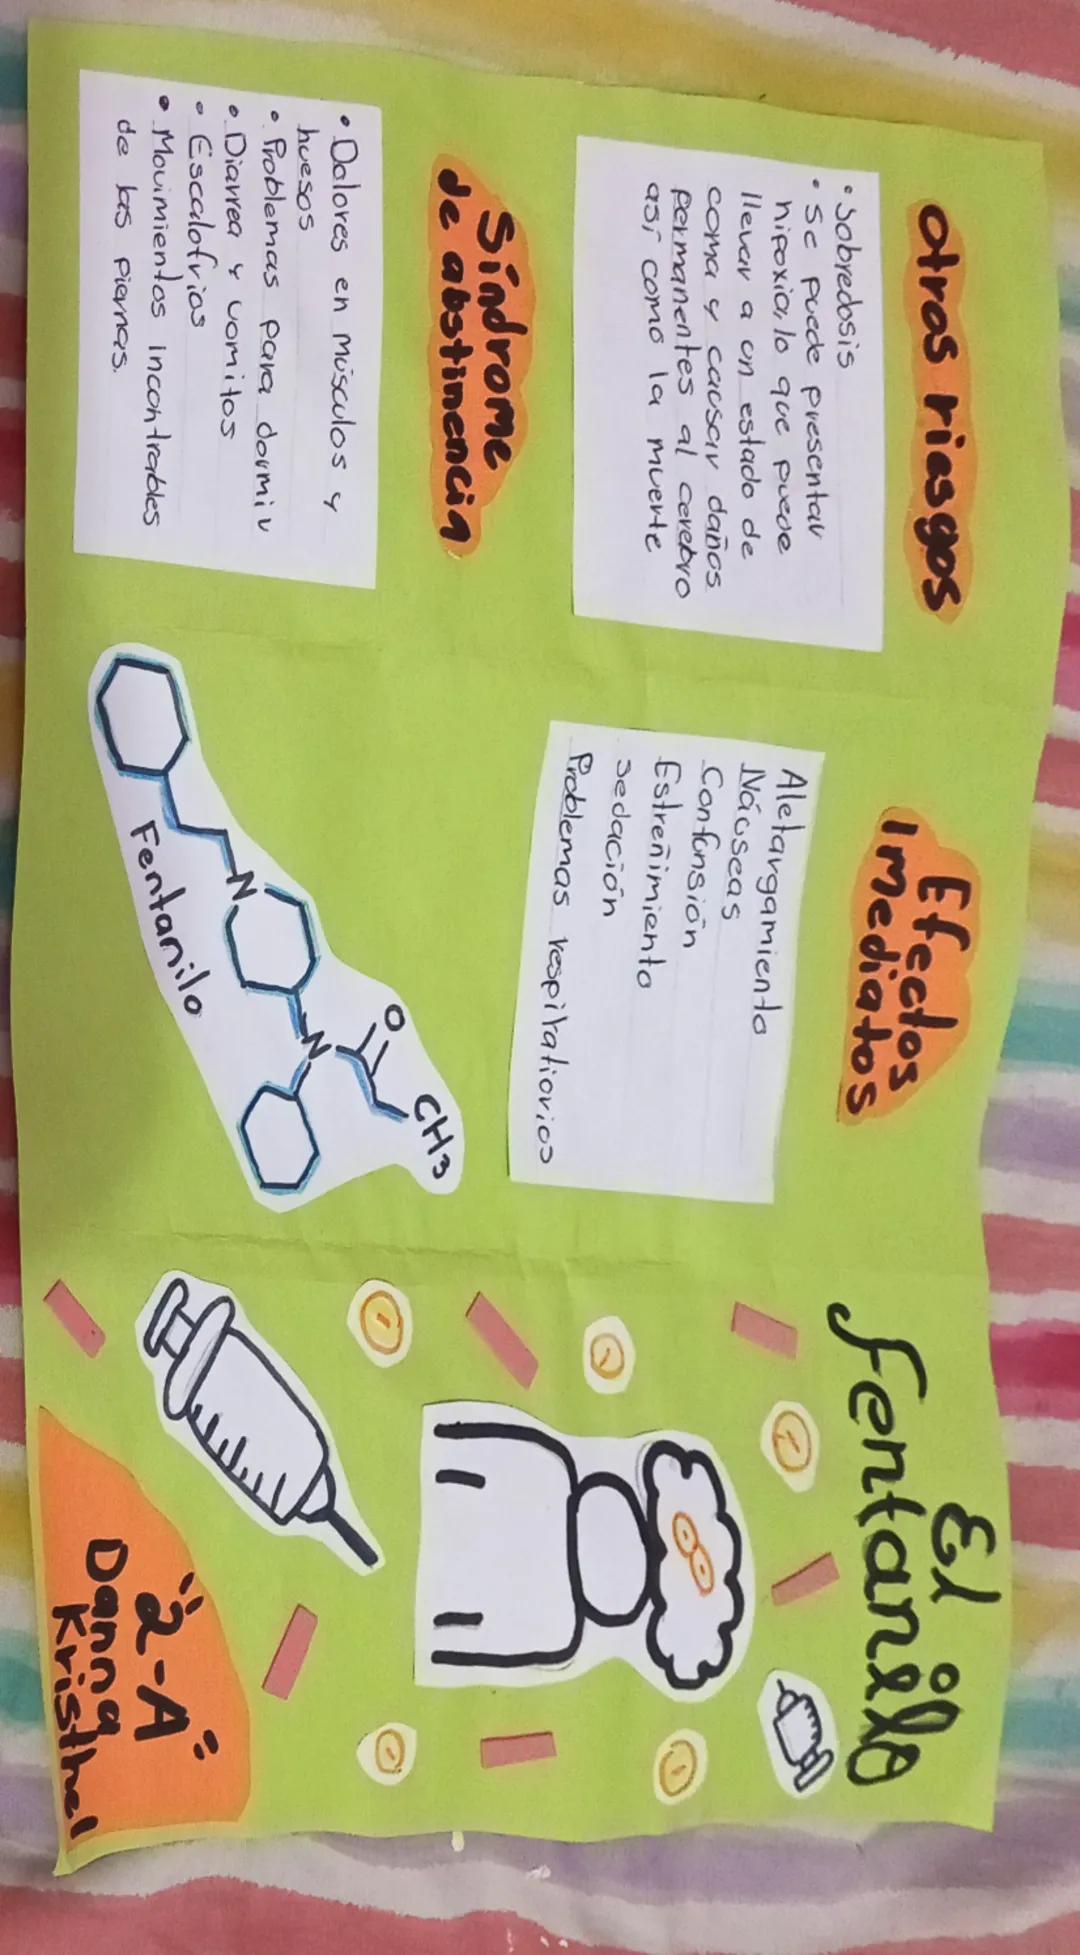 otros riesgos
• Sobredosis
• Se puede presentar
hipoxia, lo que puede
llevar a un estado de
coma y causar daños
permanentes al cerebro
así como la muerte
Síndrome
de abstinencia
• Dolores en músculos y
huesos
• Problemas para dormir
• Diarrea y vomitos
• Escalofrios
• Movimientos incontrables
de las piernas.
Efectos
Imediatos
Aletargamiento
Náuseas
Confunsión
Estreñimiento
sedación
Problemas respitatiorios
O
CH3
N
N
Fentanilo
El
fentanilo
"2-A"
Danna
Kristhel